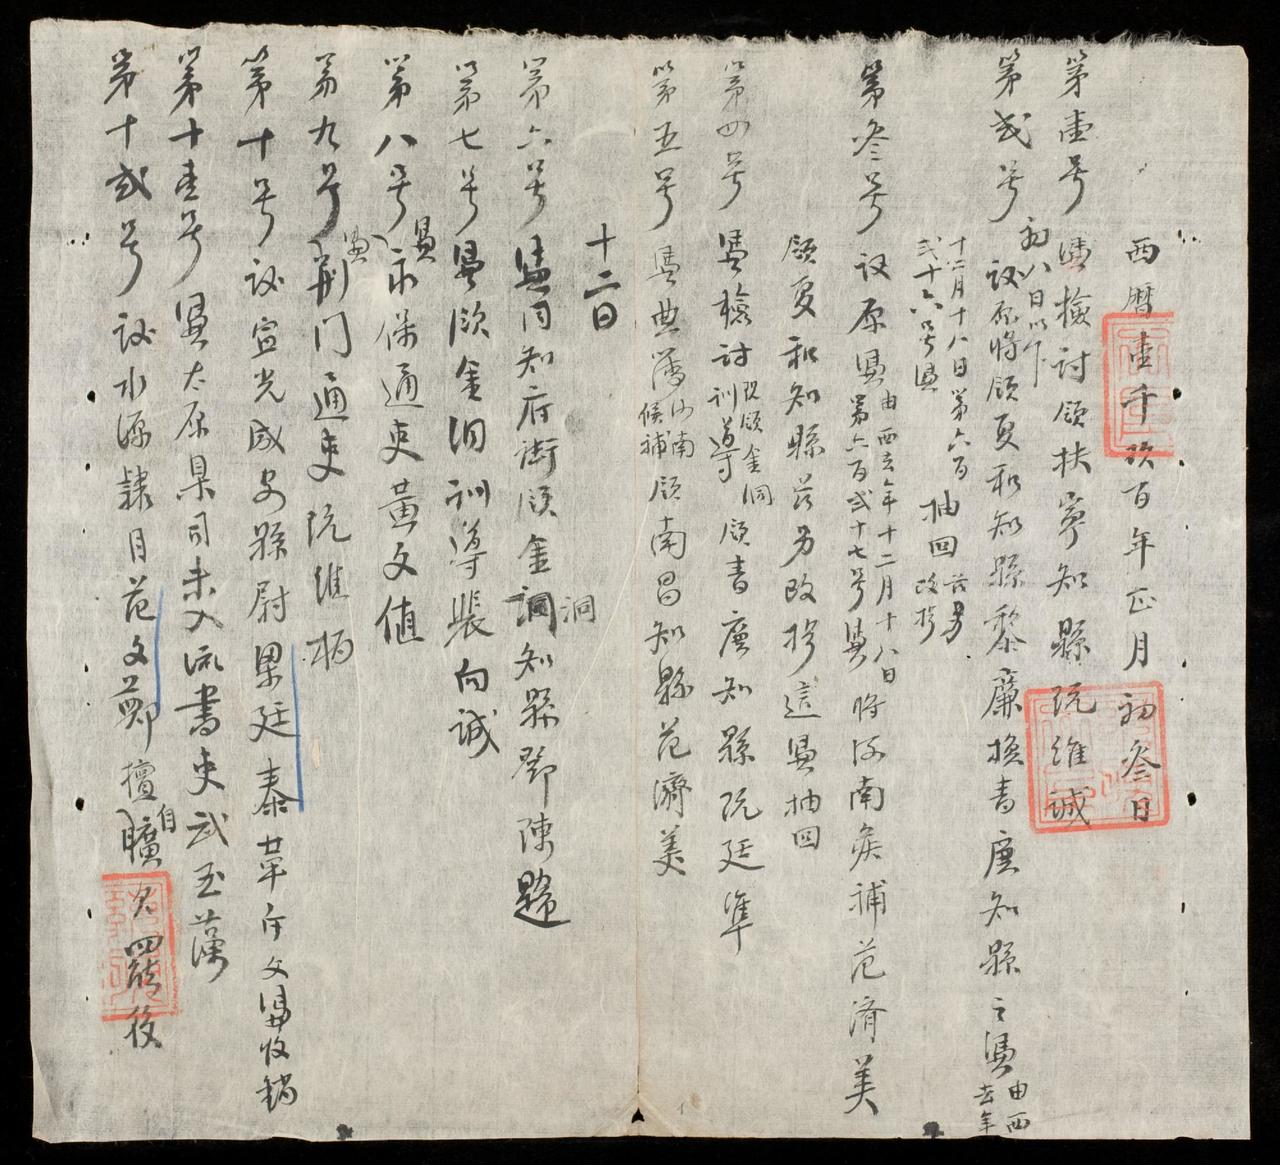 西暦壹千玖百年正月初叁日
第壹号 憑檢討領扶寧知縣阮維誠
初八日以下
第貳号 議原将領夏和知縣黎廉換青庶知縣之憑由西去年
十二月十八日第六百貳十六号憑抽回 茲另改授
第叁号 议原憑由西去年十二月十八日第六百貳十七号憑将河南候補范濟美
領夏和知縣茲另改授這憑抽回
第四号 憑檢討現領金洞訓導領青庶知縣阮廷準
第五号 憑典簿河南候補領南昌知縣范濟美
十二日
第六号 憑同知府銜領金洞知縣鄧陳
洞
第七号 憑領金洞訓導裴向誠
第八号 憑 保通吏黃文値
第九号 憑荆門通吏阮維柄
第十号 議宣光咸安縣尉 廷泰 斤文憑收銷
第十壹号 憑太原臬司未入流書吏武玉藻
第十貳号 議水源隸目范文鄭擅自曠 罷役